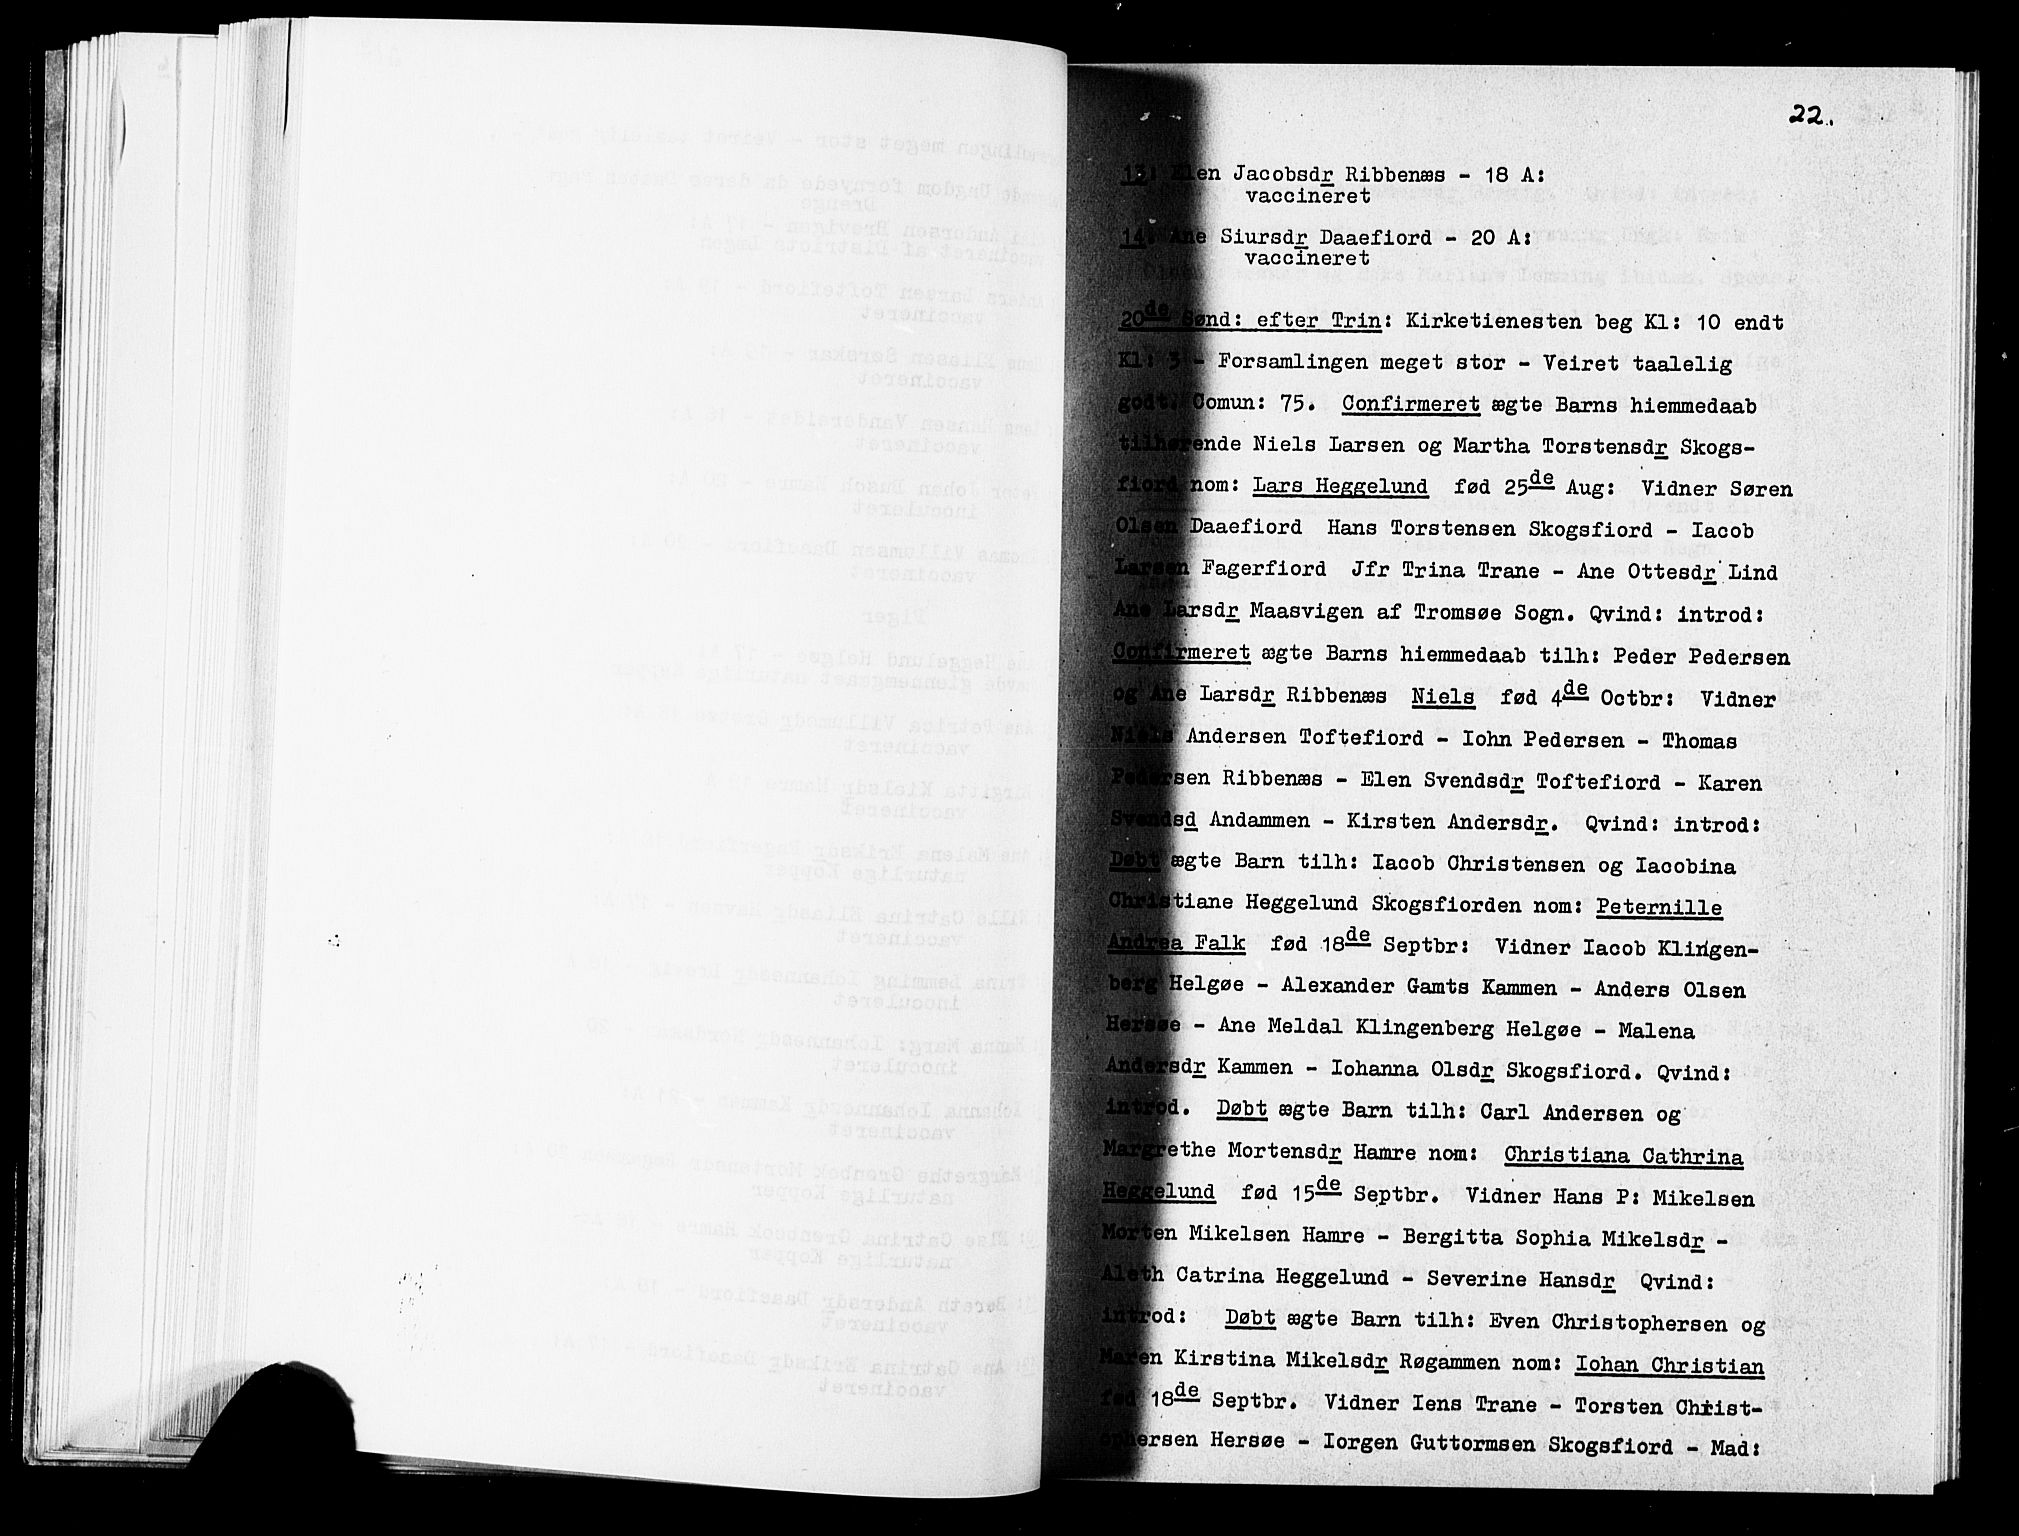 22.
13: Elen Jacobsdr Ribbenæs - 18 A:
vaccineret
14: Ane Siursdr Daaefiord - 20 A:
vaccineret
20de Sønd: efter Trin: Kirketienesten beg Kl: 10 endt
Kl: 3 - Forsamlingen meget stor - Veiret taalelig
godt. Comun: 75. Confirmeret ægte Barns hiemmedaab
tilhørende Niels Larsen og Martha Torstensdr Skogs-
fiord nom: Lars Heggelund fød 25de Aug: Vidner Søren
Olsen Daaefiord Hans Torstensen Skogsfiord - Iacob
Larsen Fagerfiord Jfr Trina Trane - Ane Ottesdr Lind
Ane Larsdr Maasvigen af Tromsøe Sogn. Qvind: introd:
Confirmeret ægte Barns hiemmedaab tilh: Peder Pedersen
og Ane Larsdr Ribbenæs Niels fød 4de Octbr: Vidner
Niels Andersen Toftefiord - Iohn Pedersen - Thomas
Pedersen Ribbenæs - Elen Svendsdr Toftefiord - Karen
Svendsd Andammen - Kirsten Andersdr. Qvind: introd:
Døbt ægte Barn tilh: Iacob Christensen og Iacobina
Christiane Heggelund Skogsfiorden nom: Peternille
Andrea Falk fød 18de Septbr: Vidner Iacob Klingen-
berg Helgøe - Alexander Gamts Kammen - Anders Olsen
Hersøe - Ane Meldal Klingenberg Helgøe - Malena
Andersdr Kammen - Iohanna Olsdr Skogsfiord. Qvind:
introd. Døbt ægte Barn tilh: Carl Andersen og
Margrethe Mortensdr Hamre nom: Christiana Cathrina
Heggelund fød 15de Septbr. Vidner Hans P: Mikelsen
Morten Mikelsen Hamre - Bergitta Sophia Mikelsdr -
Aleth Catrina Heggelund - Severine Hansdr Qvind:
introd: Døbt ægte Barn tilh: Even Christophersen og
Maren Kirstina Mikelsdr Røgammen nom: Iohan Christian
fød 18de Septbr. Vidner Iens Trane - Torsten Christ-
ophersen Hersøe - Iorgen Guttormsen Skogsfiord - Mad: